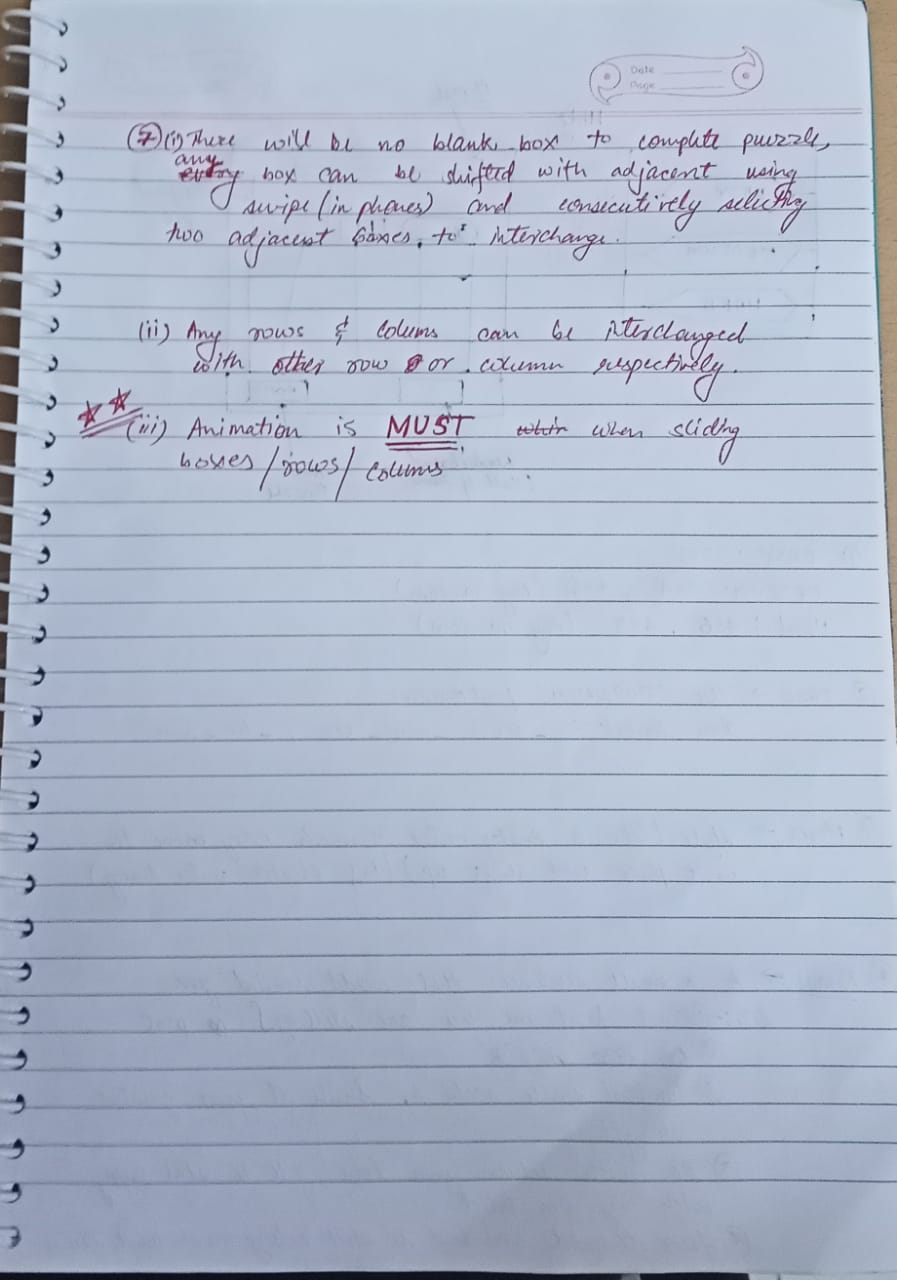 Date
Page
(7) (i) There will be no blank box to complete puzzle,
any
every box can be shifted with adjacent using
swipe (in phones) and consecutively selicting
two adjacent boxes, to interchange.
(ii) Any rows & colums can be interchanged
with other row or column respectively.
(iii) Animation is MUST when sliding
boxes / rows / colums